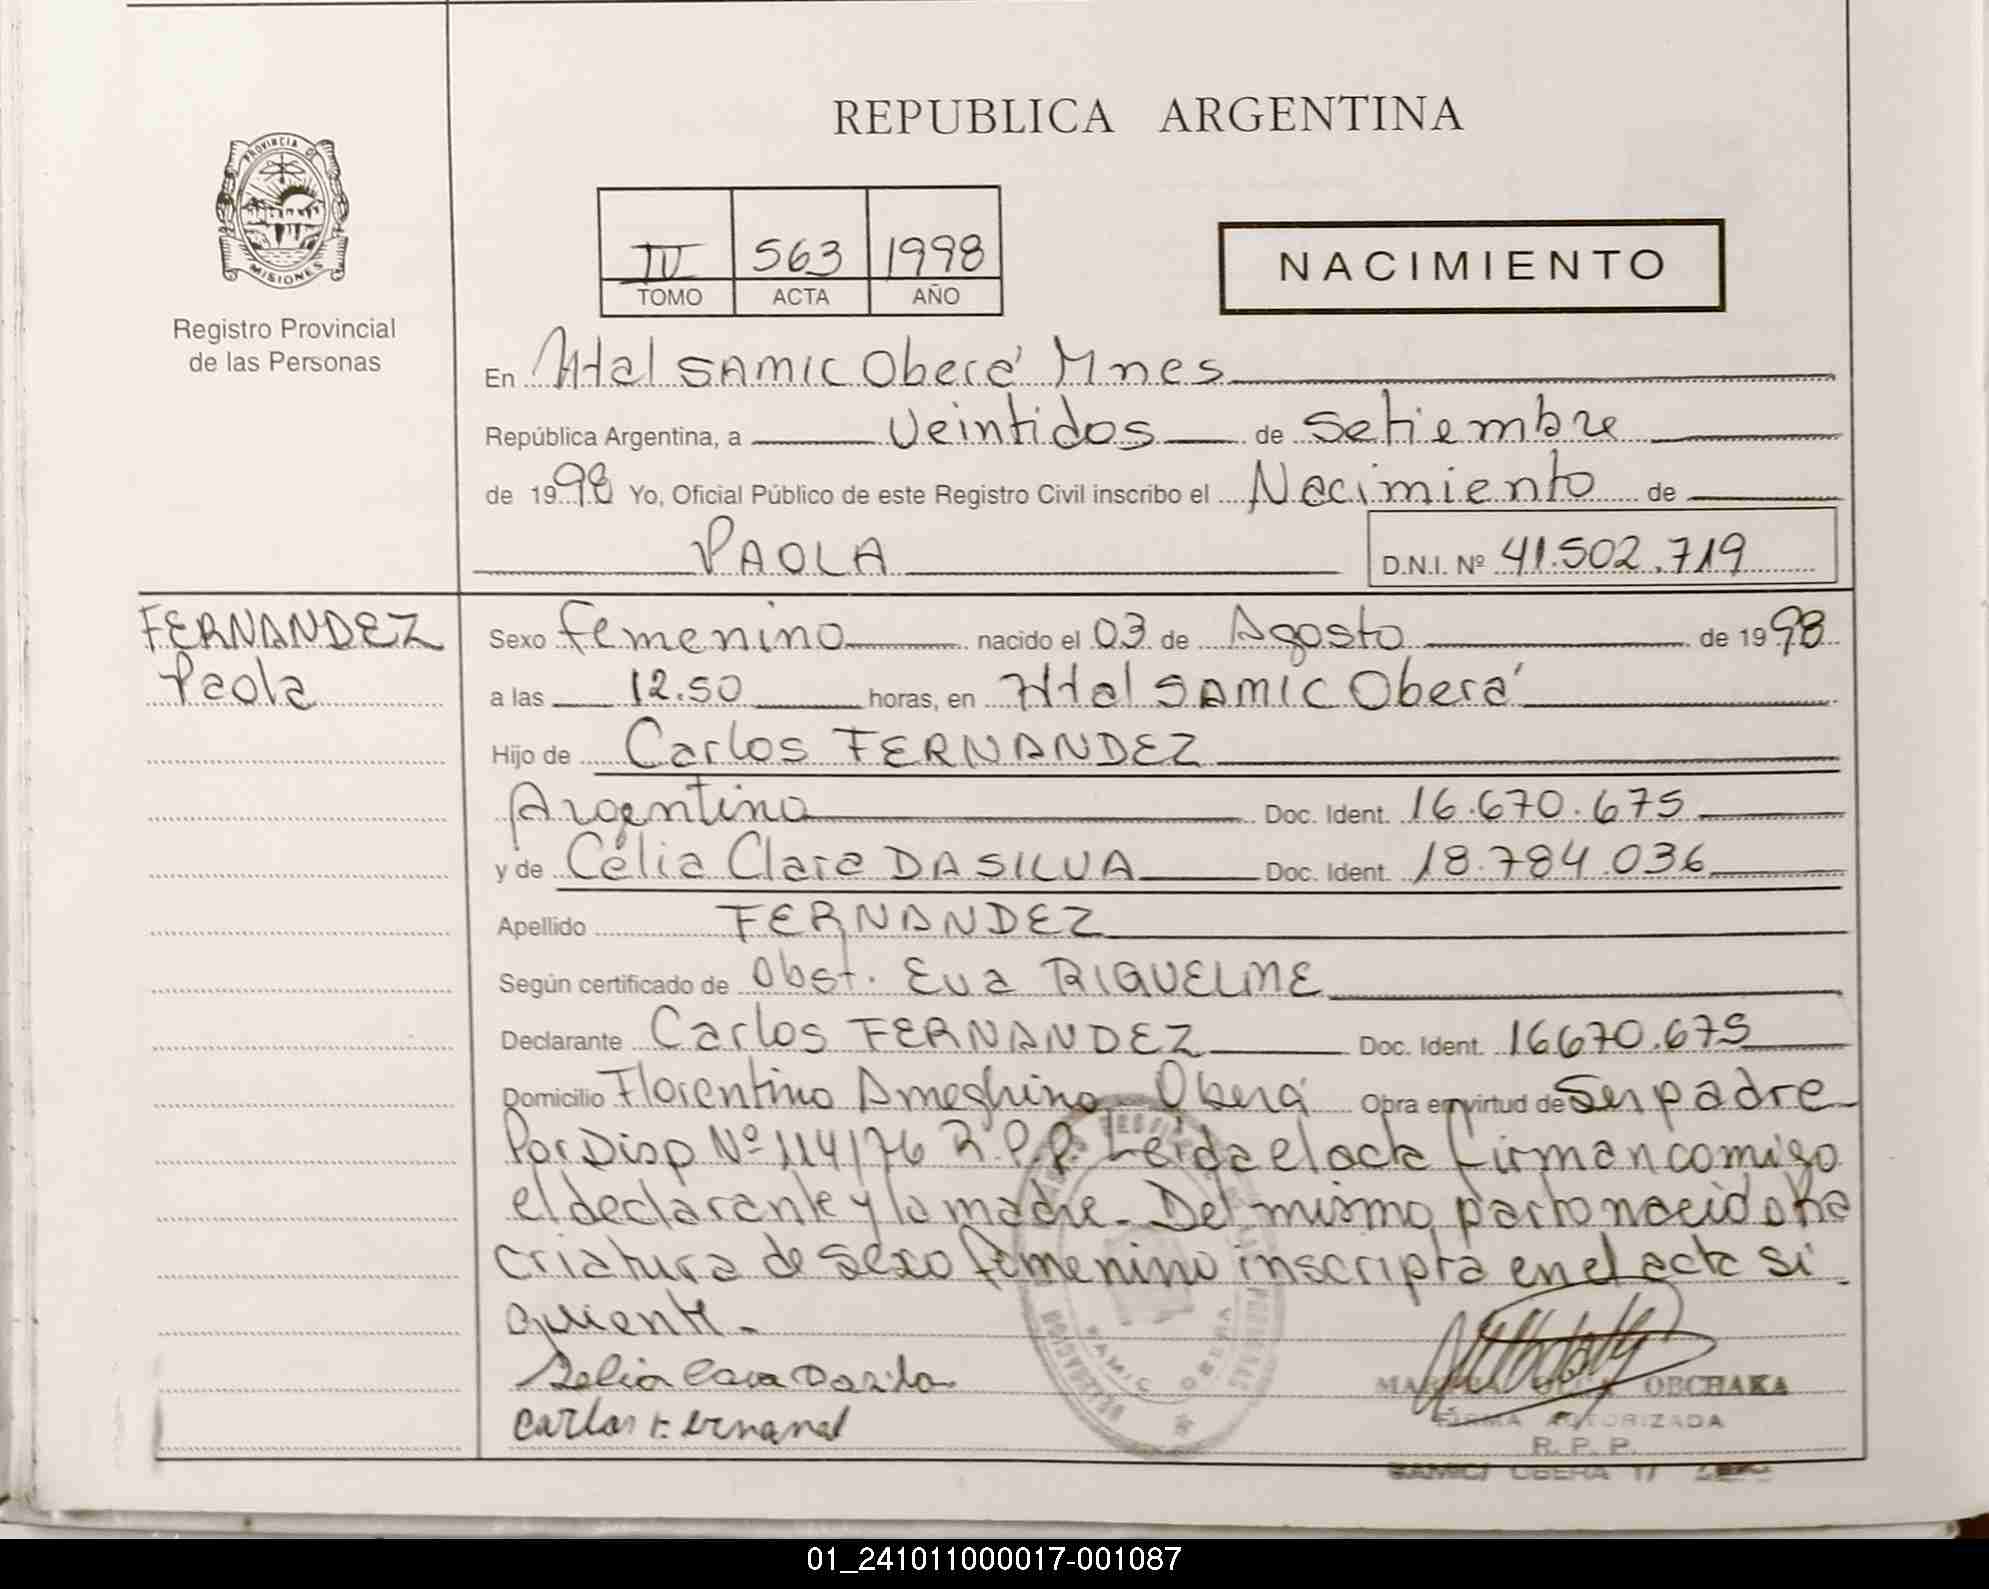 REPUBLICA ARGENTINA
PROVINCIA DE
MISIONES
Registro Provincial
de las Personas
IV 563 1998
TOMO ACTA AÑO
NACIMIENTO
En Htal SAMIC Oberá Mnes
República Argentina, a Veintidos de Setiembre
de 1998 Yo, Oficial Público de este Registro Civil inscribo el Nacimiento de
PAOLA D.N.I. Nº 41.502.719
FERNANDEZ
Paola
Sexo femenino nacido el 03 de Agosto de 1998
a las 12.50 horas, en Htal SAMIC Oberá
Hijo de Carlos FERNANDEZ
Argentino Doc. Ident. 16.670.675
y de Célia Clara DA SILVA Doc. Ident. 18.784.036
Apellido FERNANDEZ
Según certificado de Obst. Eva RIQUELME
Declarante Carlos FERNANDEZ Doc. Ident. 16670.675
Domicilio Florentino Ameghino Oberá Obra en virtud de Ser padre
Por Disp Nº 114/76 R.P.P. Leida el acta firman comigo
el declarante y la madre. Del mismo parto nacido
criatura de sexo femenino inscripta en el acta si
guiente.
SAMIC OBERA
ORCHAKA
FIRMA AUTORIZADA
R. P. P.
01_241011000017-001087